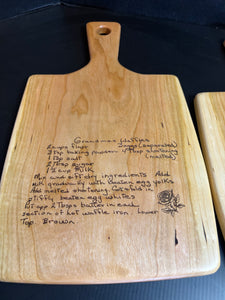 Grandmas Waffles
2 cups flour 3 eggs (separated)
3 tsp baking powder 4 Tbsp shortening
1 tsp salt (melted)
2 Tbsp sugar
1 1/2 cup Milk
Mix and sift dry ingredients Add
milk gradually with beaten egg yolks
Add melted shortening. Cut + fold in
stiffly beaten egg whites
Put app 2 Tbsps batter in each
section of hot waffle iron. Lower
Top. Brown.